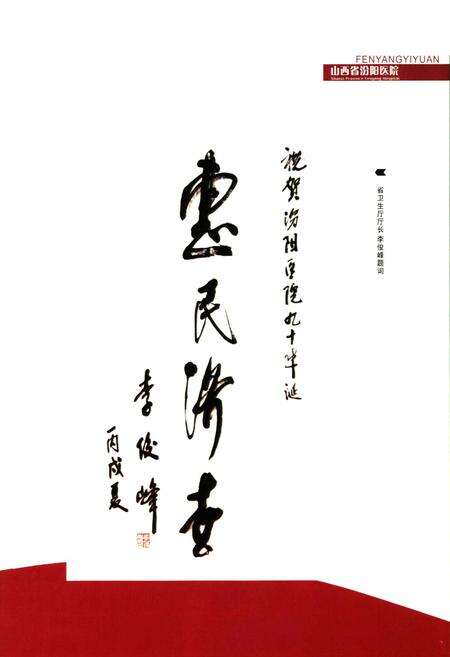 FENYANGYIYUAN
山西省汾阳医院
Shanxi Province Fenyang Hospital
省卫生厅厅长 李俊峰题词
祝贺汾阳医院九十华诞
惠民济世
李俊峰
丙戌夏